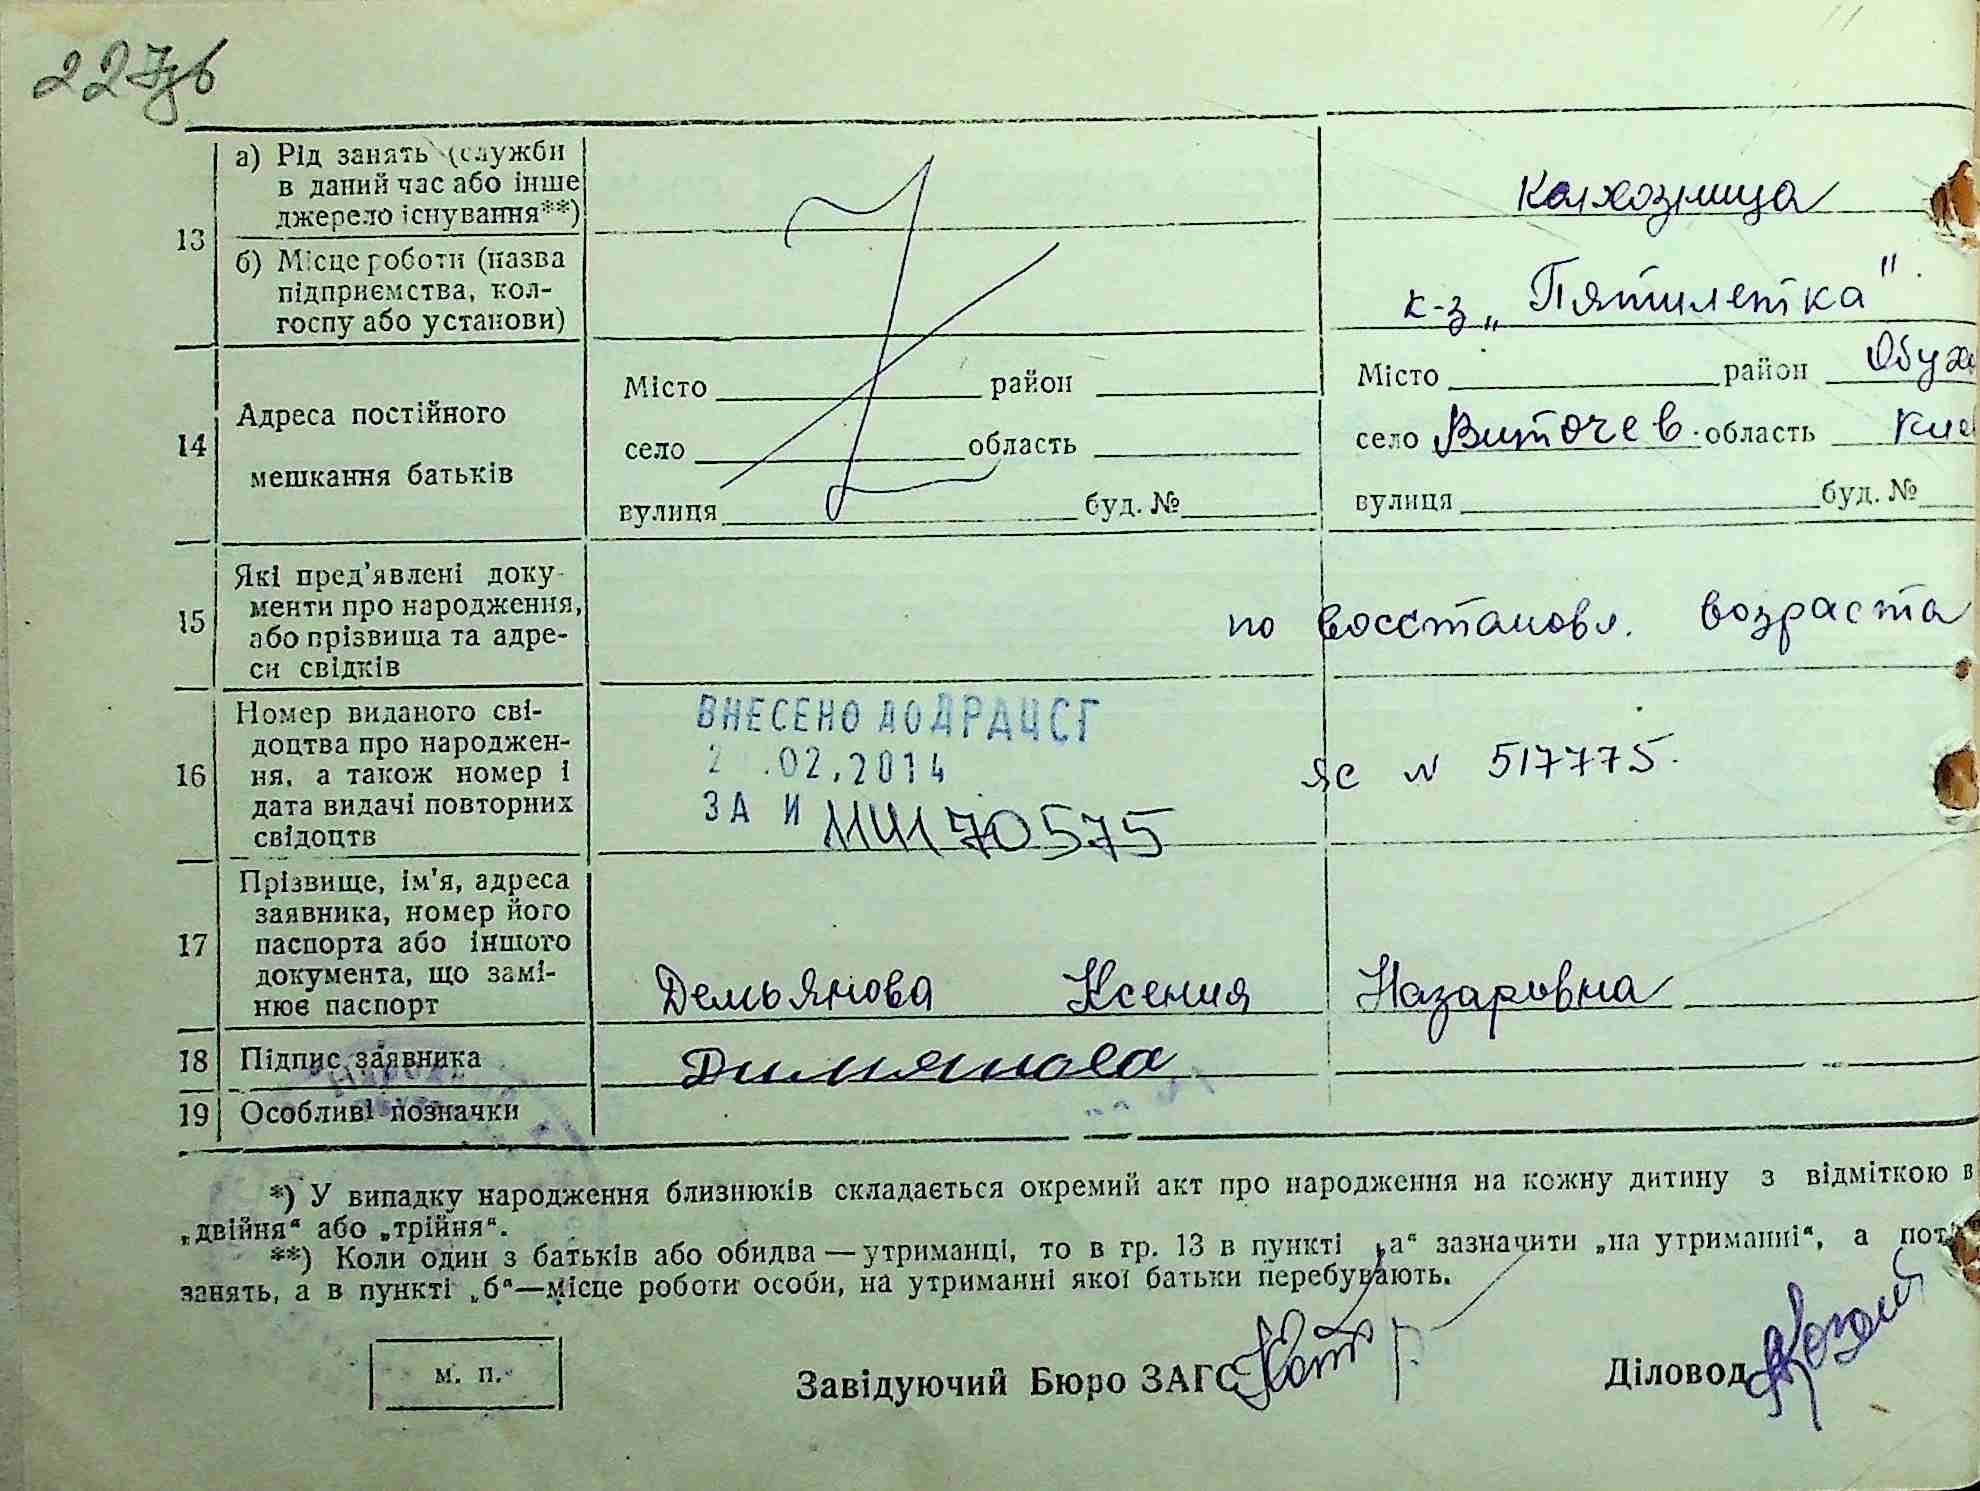 227зв
13 а) Рід занять (служби
в даний час або інше
джерело існування**)
колхозница
б) Місце роботи (назва
підприємства, кол-
госпу або установи)
к-з „Пятилетка"
14 Адреса постійного
мешкання батьків
Місто район
село область
вулиця буд. №
Місто район Обух
село Витачев область Кие
вулиця буд. №
15 Які пред'явлені доку-
менти про народження,
або прізвища та адре-
си свідків
по восстановл. возраста
16 Номер виданого сві-
доцтва про народжен-
ня, а також номер і
дата видачі повторних
свідоцтв
ВНЕСЕНО ДО ДРАЦСГ
2 .02.2014
ЗА И 70575
ЯС N 517775.
17 Прізвище, ім'я, адреса
заявника, номер його
паспорта або іншого
документа, що замі-
нює паспорт
Демьянова Ксения Назаровна
18 Підпис заявника
Димянова
19 Особливі позначки
*) У випадку народження близнюків складається окремий акт про народження на кожну дитину з відміткою в
„двійня“ або „трійня“.
**) Коли один з батьків або обидва — утриманці, то в гр. 13 в пункті „а“ зазначити „на утриманні“, а пот
занять, а в пункті „б“—місце роботи особи, на утриманні якої батьки перебувають.
м. п.
Завідуючий Бюро ЗАГС
Діловод